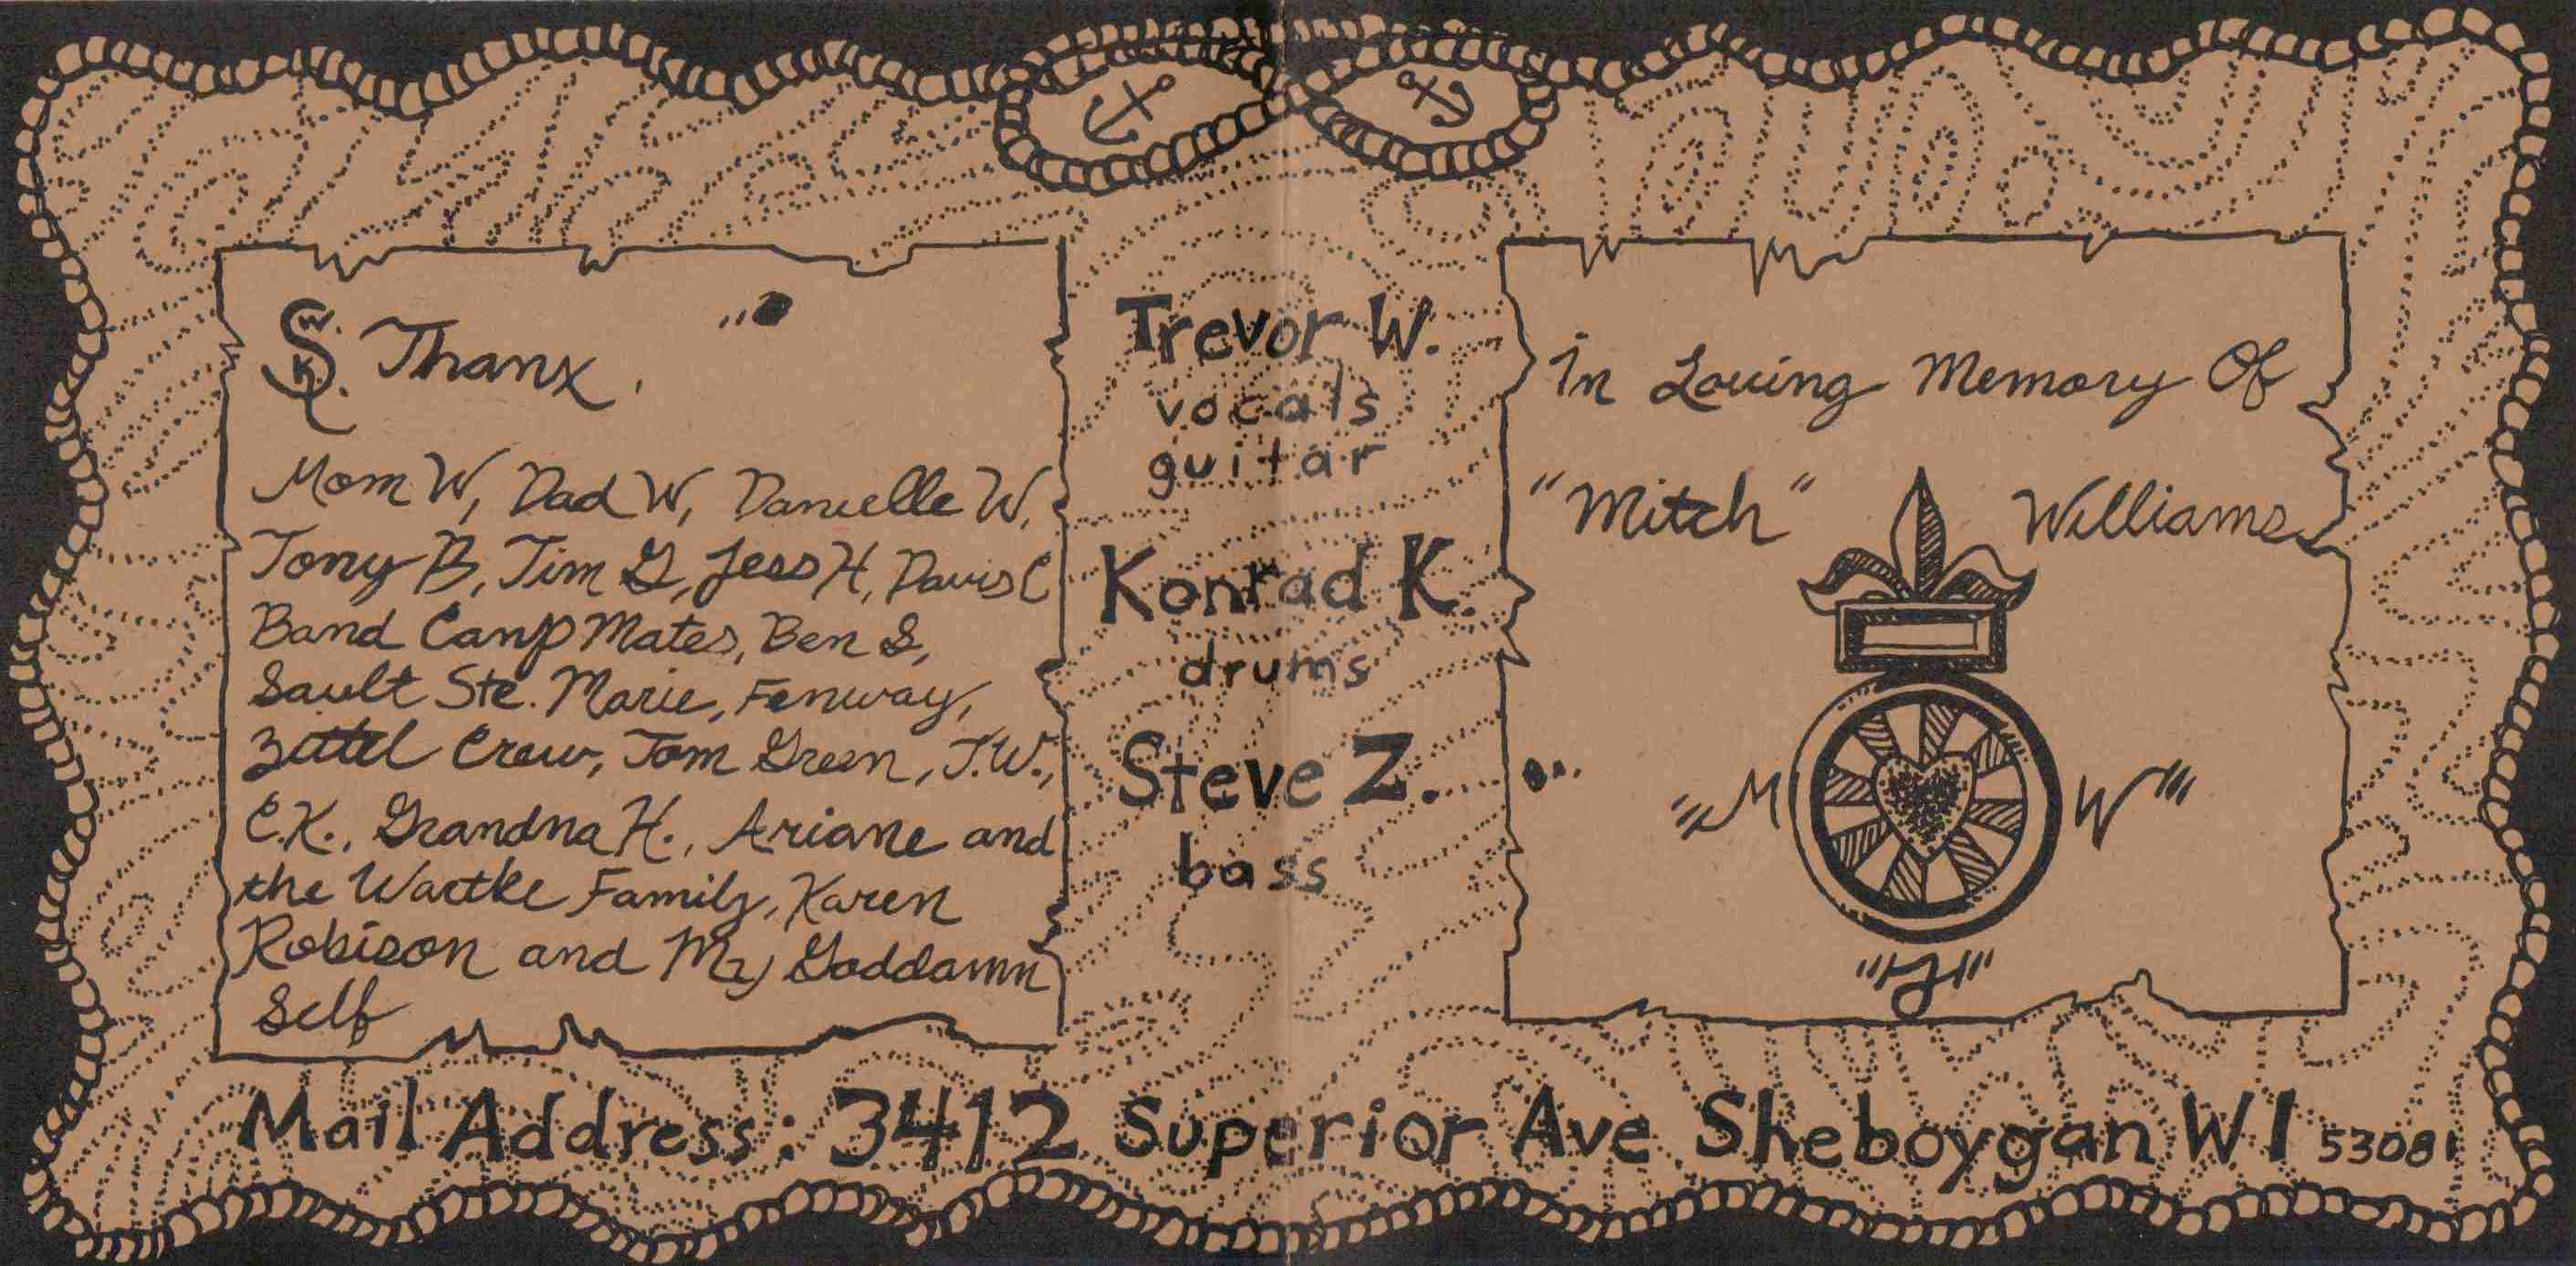 S W. K.
Thanx,
Mom W, Dad W, Danielle W,
Tony B, Tim G, Jess H, Davis C
Band Camp Mates, Ben S,
Sault Ste. Marie, Fenway,
Zittel Crew, Tom Green, J.W.,
C.K., Grandna H., Ariane and
the Wartke Family, Karen
Robison and My Goddamn
Self
Trevor W.
vocals
guitar
Konrad K.
drums
Steve Z.
bass
In Loving Memory Of
"Mitch" Williams
M W
Mail Address: 3412 Superior Ave Sheboygan WI 53081